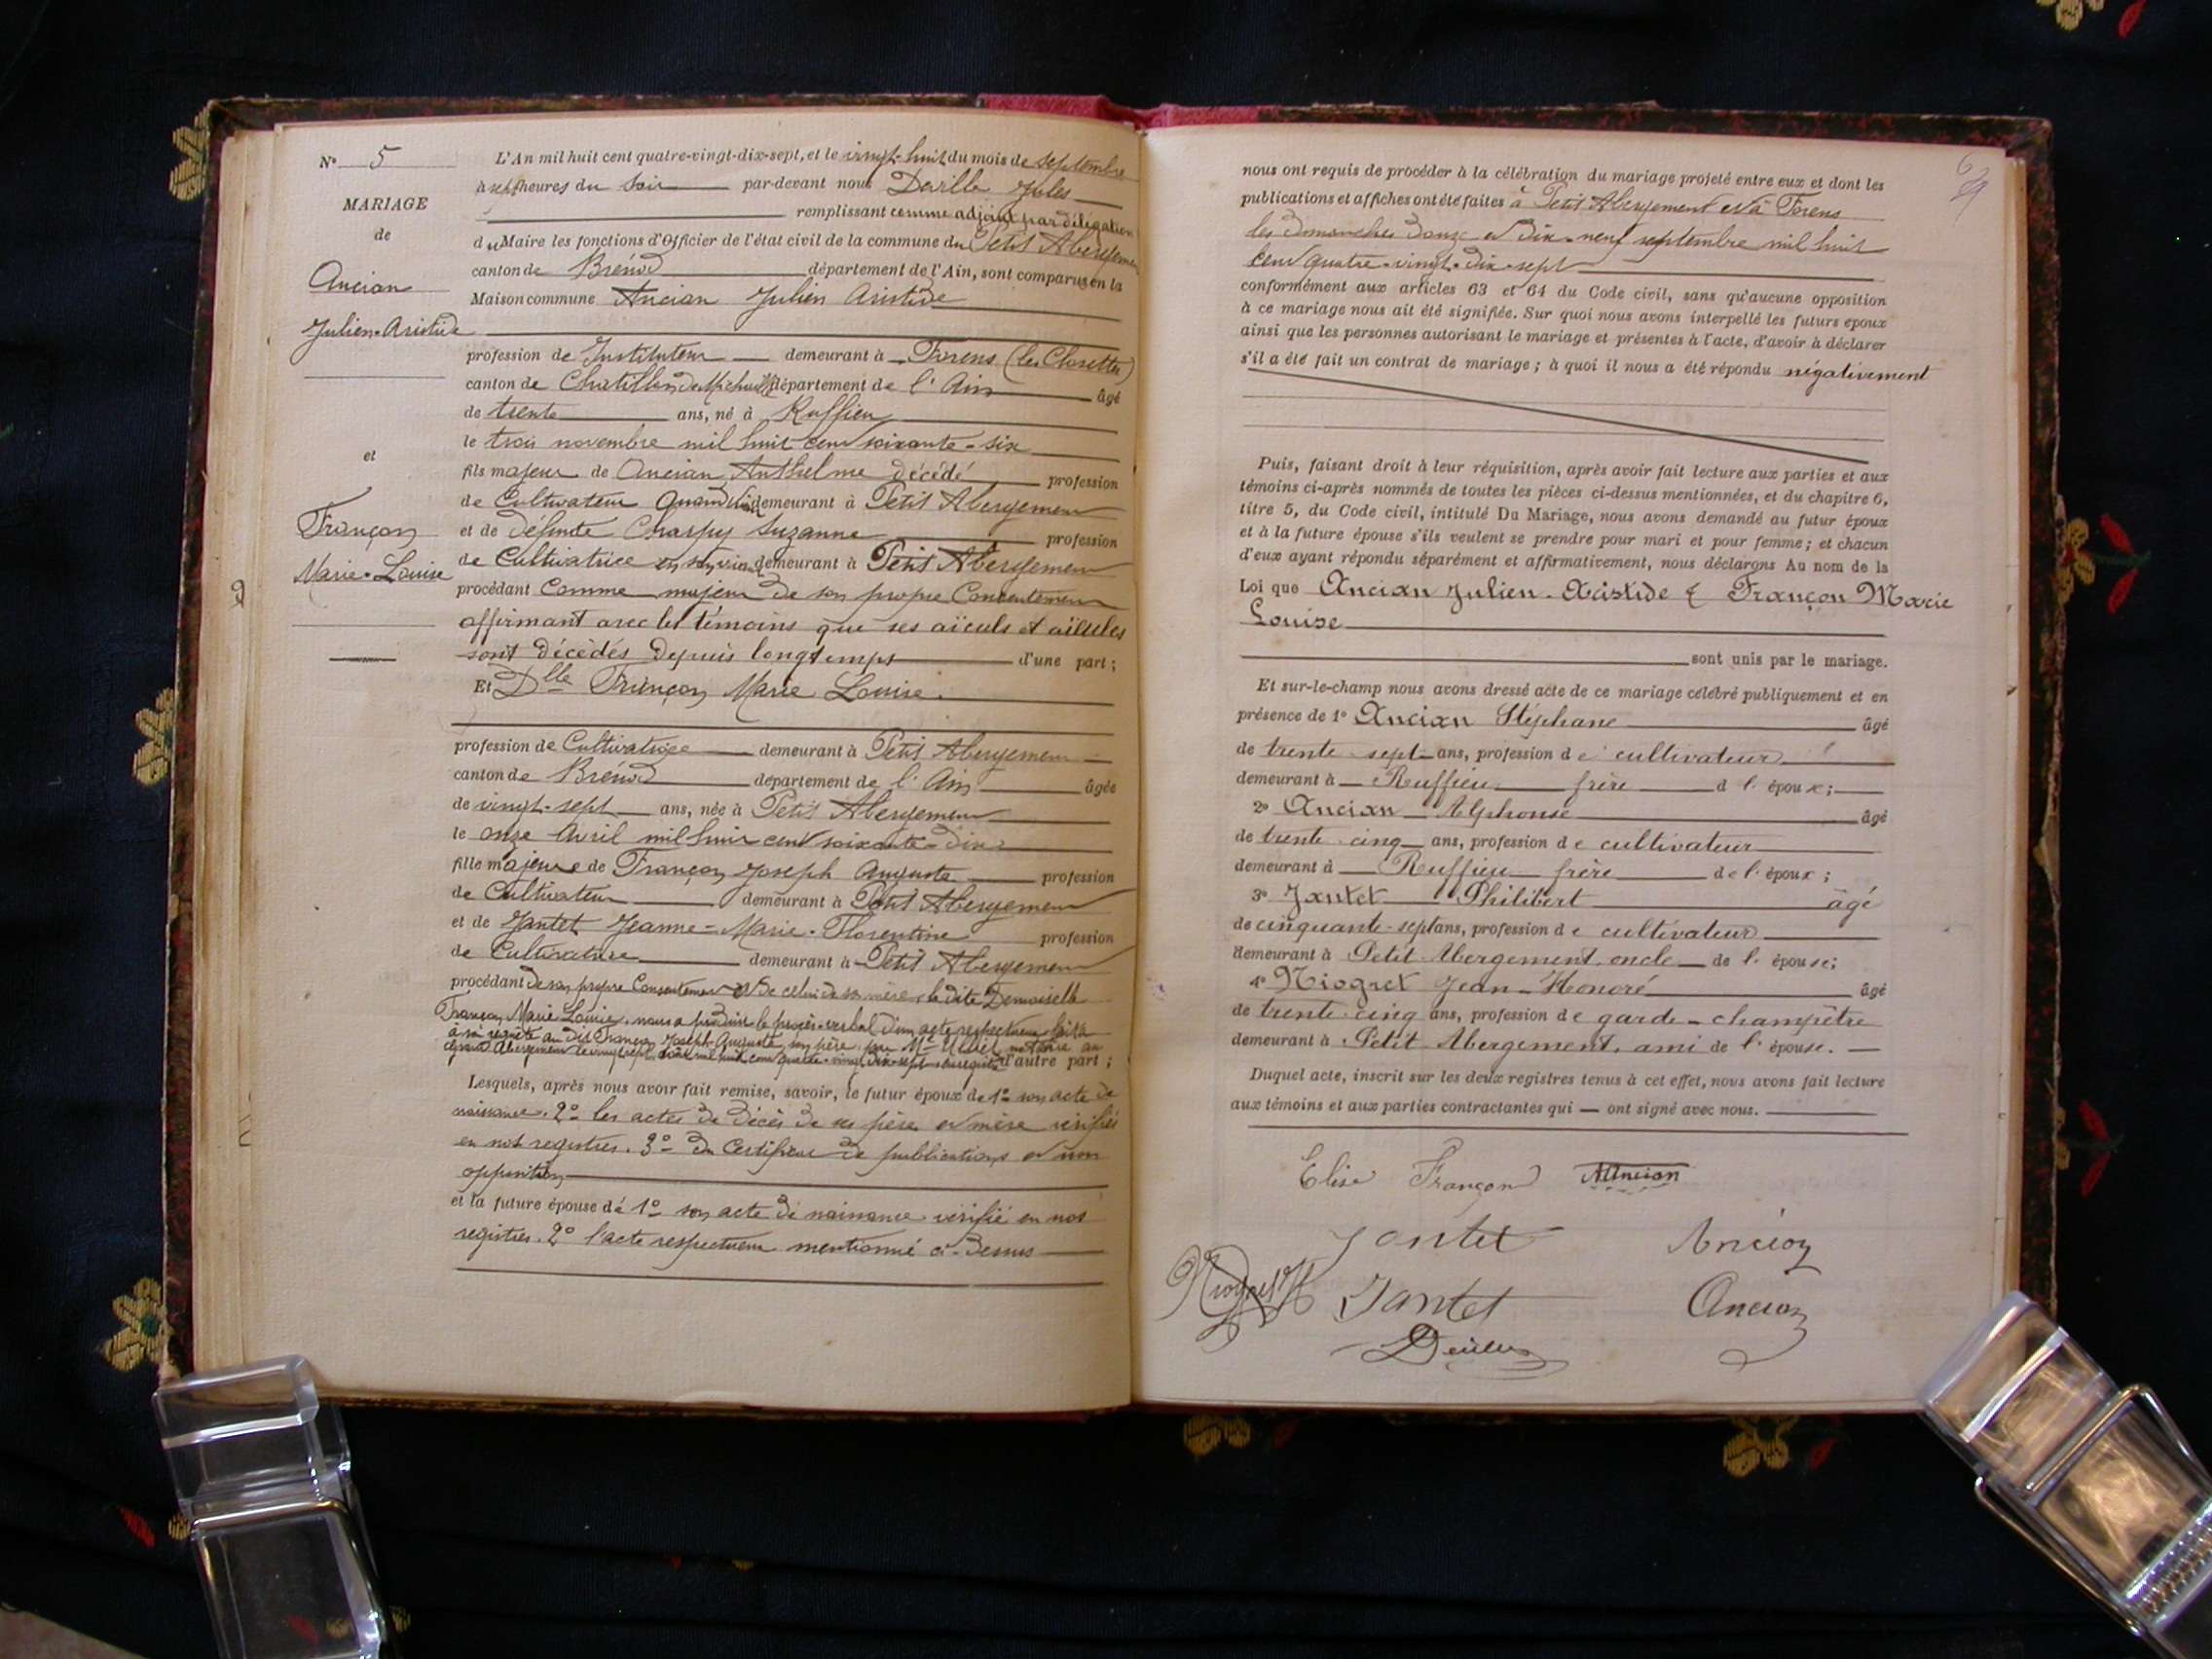 N° 5
MARIAGE
de
Ancian
Julien-Aristide
et
Françon
Marie-Louise
L'An mil huit cent quatre-vingt-dix-sept, et le vingt-huit du mois de septembre
à sept heures du soir par-devant nous Deville Jules
remplissant comme adjoint par délégation
du Maire les fonctions d'Officier de l'état civil de la commune du Petit Abergement
canton de Brénod département de l'Ain, sont comparus en la
Maison commune Ancian Julien Aristide
profession de Instituteur demeurant à Forens (les Closettes)
canton de Chatillon de Michaille département de l'Ain âgé
de trente ans, né à Ruffieu
le trois novembre mil huit cent soixante-six
fils majeur de Ancian Anthelme décédé profession
de Cultivateur quand vivait demeurant à Petit Abergement
et de défunte Charpy Suzanne profession
de Cultivatrice en son vivant demeurant à Petit Abergement
procédant comme majeur de son propre Consentement
affirmant avec les témoins que ses aïeuls et aïeules
sont décédés depuis longtemps d'une part ;
Et Dlle Françon Marie Louise.
profession de Cultivatrice demeurant à Petit Abergement
canton de Brénod département de l'Ain âgée
de vingt-sept ans, née à Petit Abergement
le onze Avril mil huit cent soixante-dix
fille majeure de Françon Joseph Auguste profession
de Cultivateur demeurant à Petit Abergement
et de Jantet Jeanne-Marie-Florentine profession
de Cultivatrice demeurant à Petit Abergement
procédant de son propre Consentement et de celui de sa mère, la dite Demoiselle
Françon Marie Louise, nous a produit le procès-verbal d'un acte respectueux fait
à sa requête au dit Françon Joseph Auguste, son père, par Me notaire au
Abergement le vingt sept août mil huit cent quatre-vingt dix-sept d'autre part ;
Lesquels, après nous avoir fait remise, savoir, le futur époux de 1° son acte de
naissance. 2° les actes de décès de ses père et mère vérifiés
en nos registres. 3° du Certificat de publications et non
opposition
et la future épouse de 1° son acte de naissance vérifié en nos
registres. 2° l'acte respectueux mentionné ci-dessus
nous ont requis de procéder à la célébration du mariage projeté entre eux et dont les
publications et affiches ont été faites à Petit Abergement et à Forens
les dimanches douze et dix-neuf septembre mil huit
cent quatre-vingt-dix-sept
conformément aux articles 63 et 64 du Code civil, sans qu'aucune opposition
à ce mariage nous ait été signifiée. Sur quoi nous avons interpellé les futurs époux
ainsi que les personnes autorisant le mariage et présentes à l'acte, d'avoir à déclarer
s'il a été fait un contrat de mariage ; à quoi il nous a été répondu négativement
Puis, faisant droit à leur réquisition, après avoir fait lecture aux parties et aux
témoins ci-après nommés de toutes les pièces ci-dessus mentionnées, et du chapitre 6,
titre 5, du Code civil, intitulé Du Mariage, nous avons demandé au futur époux
et à la future épouse s'ils veulent se prendre pour mari et pour femme ; et chacun
d'eux ayant répondu séparément et affirmativement, nous déclarons Au nom de la
Loi que Ancian Julien-Aristide & Françon Marie
Louise
sont unis par le mariage.
Et sur-le-champ nous avons dressé acte de ce mariage célébré publiquement et en
présence de 1° Ancian Stéphane âgé
de trente sept ans, profession de cultivateur
demeurant à Ruffieu frère de l'époux ;
2° Ancian Alphonse âgé
de trente-cinq ans, profession de cultivateur
demeurant à Ruffieu frère de l'époux ;
3° Jantet Philibert âgé
de cinquante-sept ans, profession de cultivateur
demeurant à Petit Abergement, oncle de l'épouse;
4° Niogret Jean-Honoré âgé
de trente-cinq ans, profession de garde-champêtre
demeurant à Petit Abergement, ami de l'épouse.
Duquel acte, inscrit sur les deux registres tenus à cet effet, nous avons fait lecture
aux témoins et aux parties contractantes qui — ont signé avec nous.
Elise Françon Ancian
Jantet Ancian
Niogret H Jantet Ancian
Deville